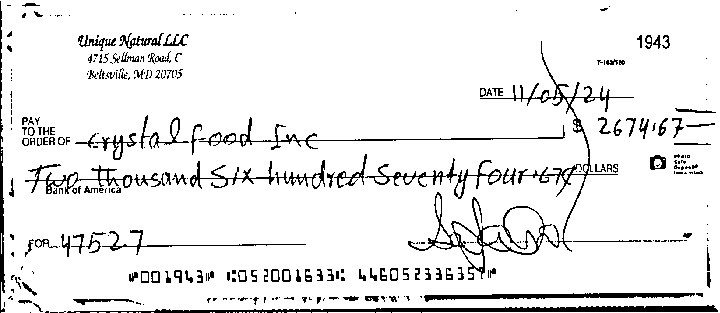 Unique Natural LLC
1943
4715 Sellman Road, C
Beltsville, MD 20705
DATE 11/05/24
PAY TO THE ORDER OF Crystal food Inc $ 2674.67
Two thousand Six hundred Seventy four . 67/ DOLLARS
Bank of America
FOR 47527
⑈001943⑈ ⑆052001633⑆ 446052336357⑈